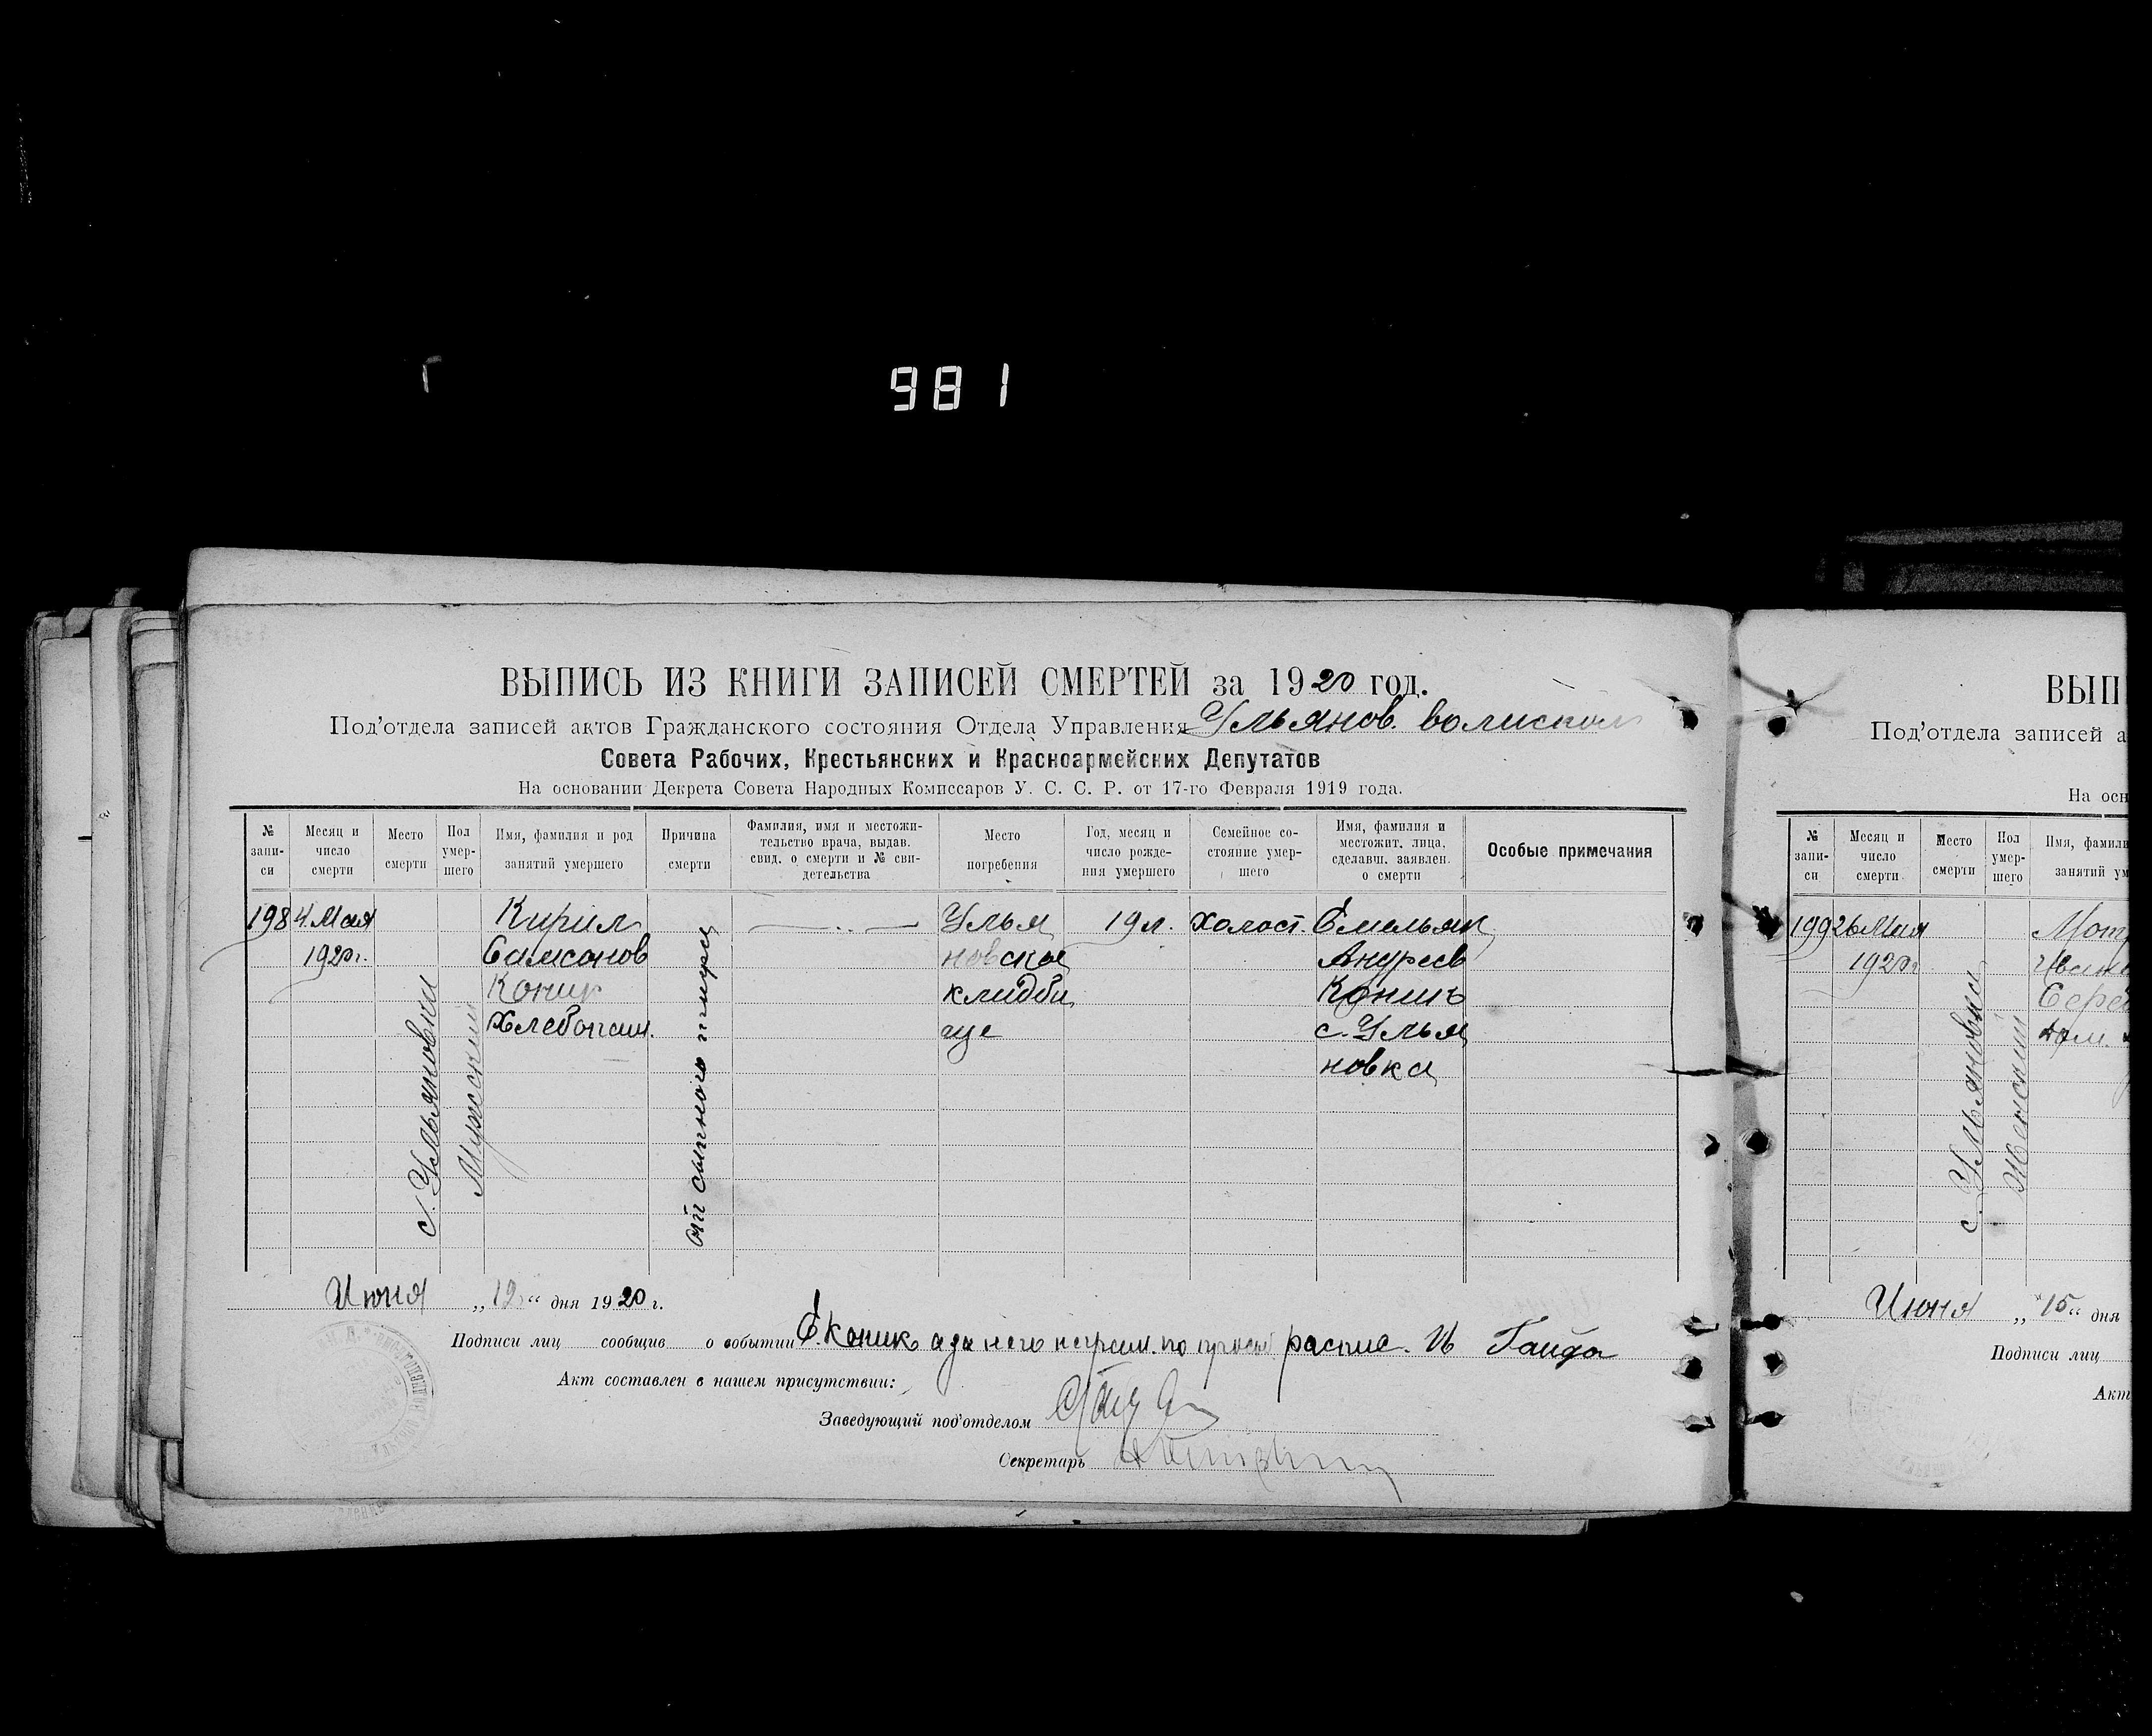 981
ВЫПИСЬ ИЗ КНИГИ ЗАПИСЕЙ СМЕРТЕЙ за 1920 год.
Под'отдела записей актов Гражданского состояния Отдела Управления Ульянов.
Совета Рабочих, Крестьянских и Красноармейских Депутатов
На основании Декрета Совета Народных Комиссаров У. С. С. Р. от 17-го Февраля 1919 года.
№ запи-
си
Месяц и
число
смерти
Место
смерти
Пол
умер-
шего
Имя, фамилия и род
занятий умершего
Причина
смерти
Фамилия, имя и местожи-
тельство врача, выдав.
свид. о смерти и № сви-
детельства
Место
погребения
Год, месяц и
число рожде-
ния умершего
Семейное со-
стояние умер-
шего
Имя, фамилия и
местожит. лица,
сделавш. заявлен.
о смерти
Особые примечания
198
4 Мая
1920 г.
с. Ульяновка
Мужский
Кирил
Самсонов
Коник
Хлебопаш.
от сыпного тифа
Улья
новское
кладби
ще
19 л.
холост.
Емельян
Андреев
Коник
с. Улья
новка
Июня „12“ дня 1920 г.
Подписи лиц сообщив о событии Е. Коник а за него неграм. по прось распис. И Гайда
Акт составлен в нашем присутствии:
Заведующий под'отделом
Секретарь
ВЫП
Под'отдела записей а
На осн
№
запи-
си
Месяц и
число
смерти
Место
смерти
Пол
умер-
шего
Имя, фамили
занятий ум
199
26 Мая
1920 г
с. Ульяновка
Женский
Июня „15“ дня
Подписи лиц
Акт